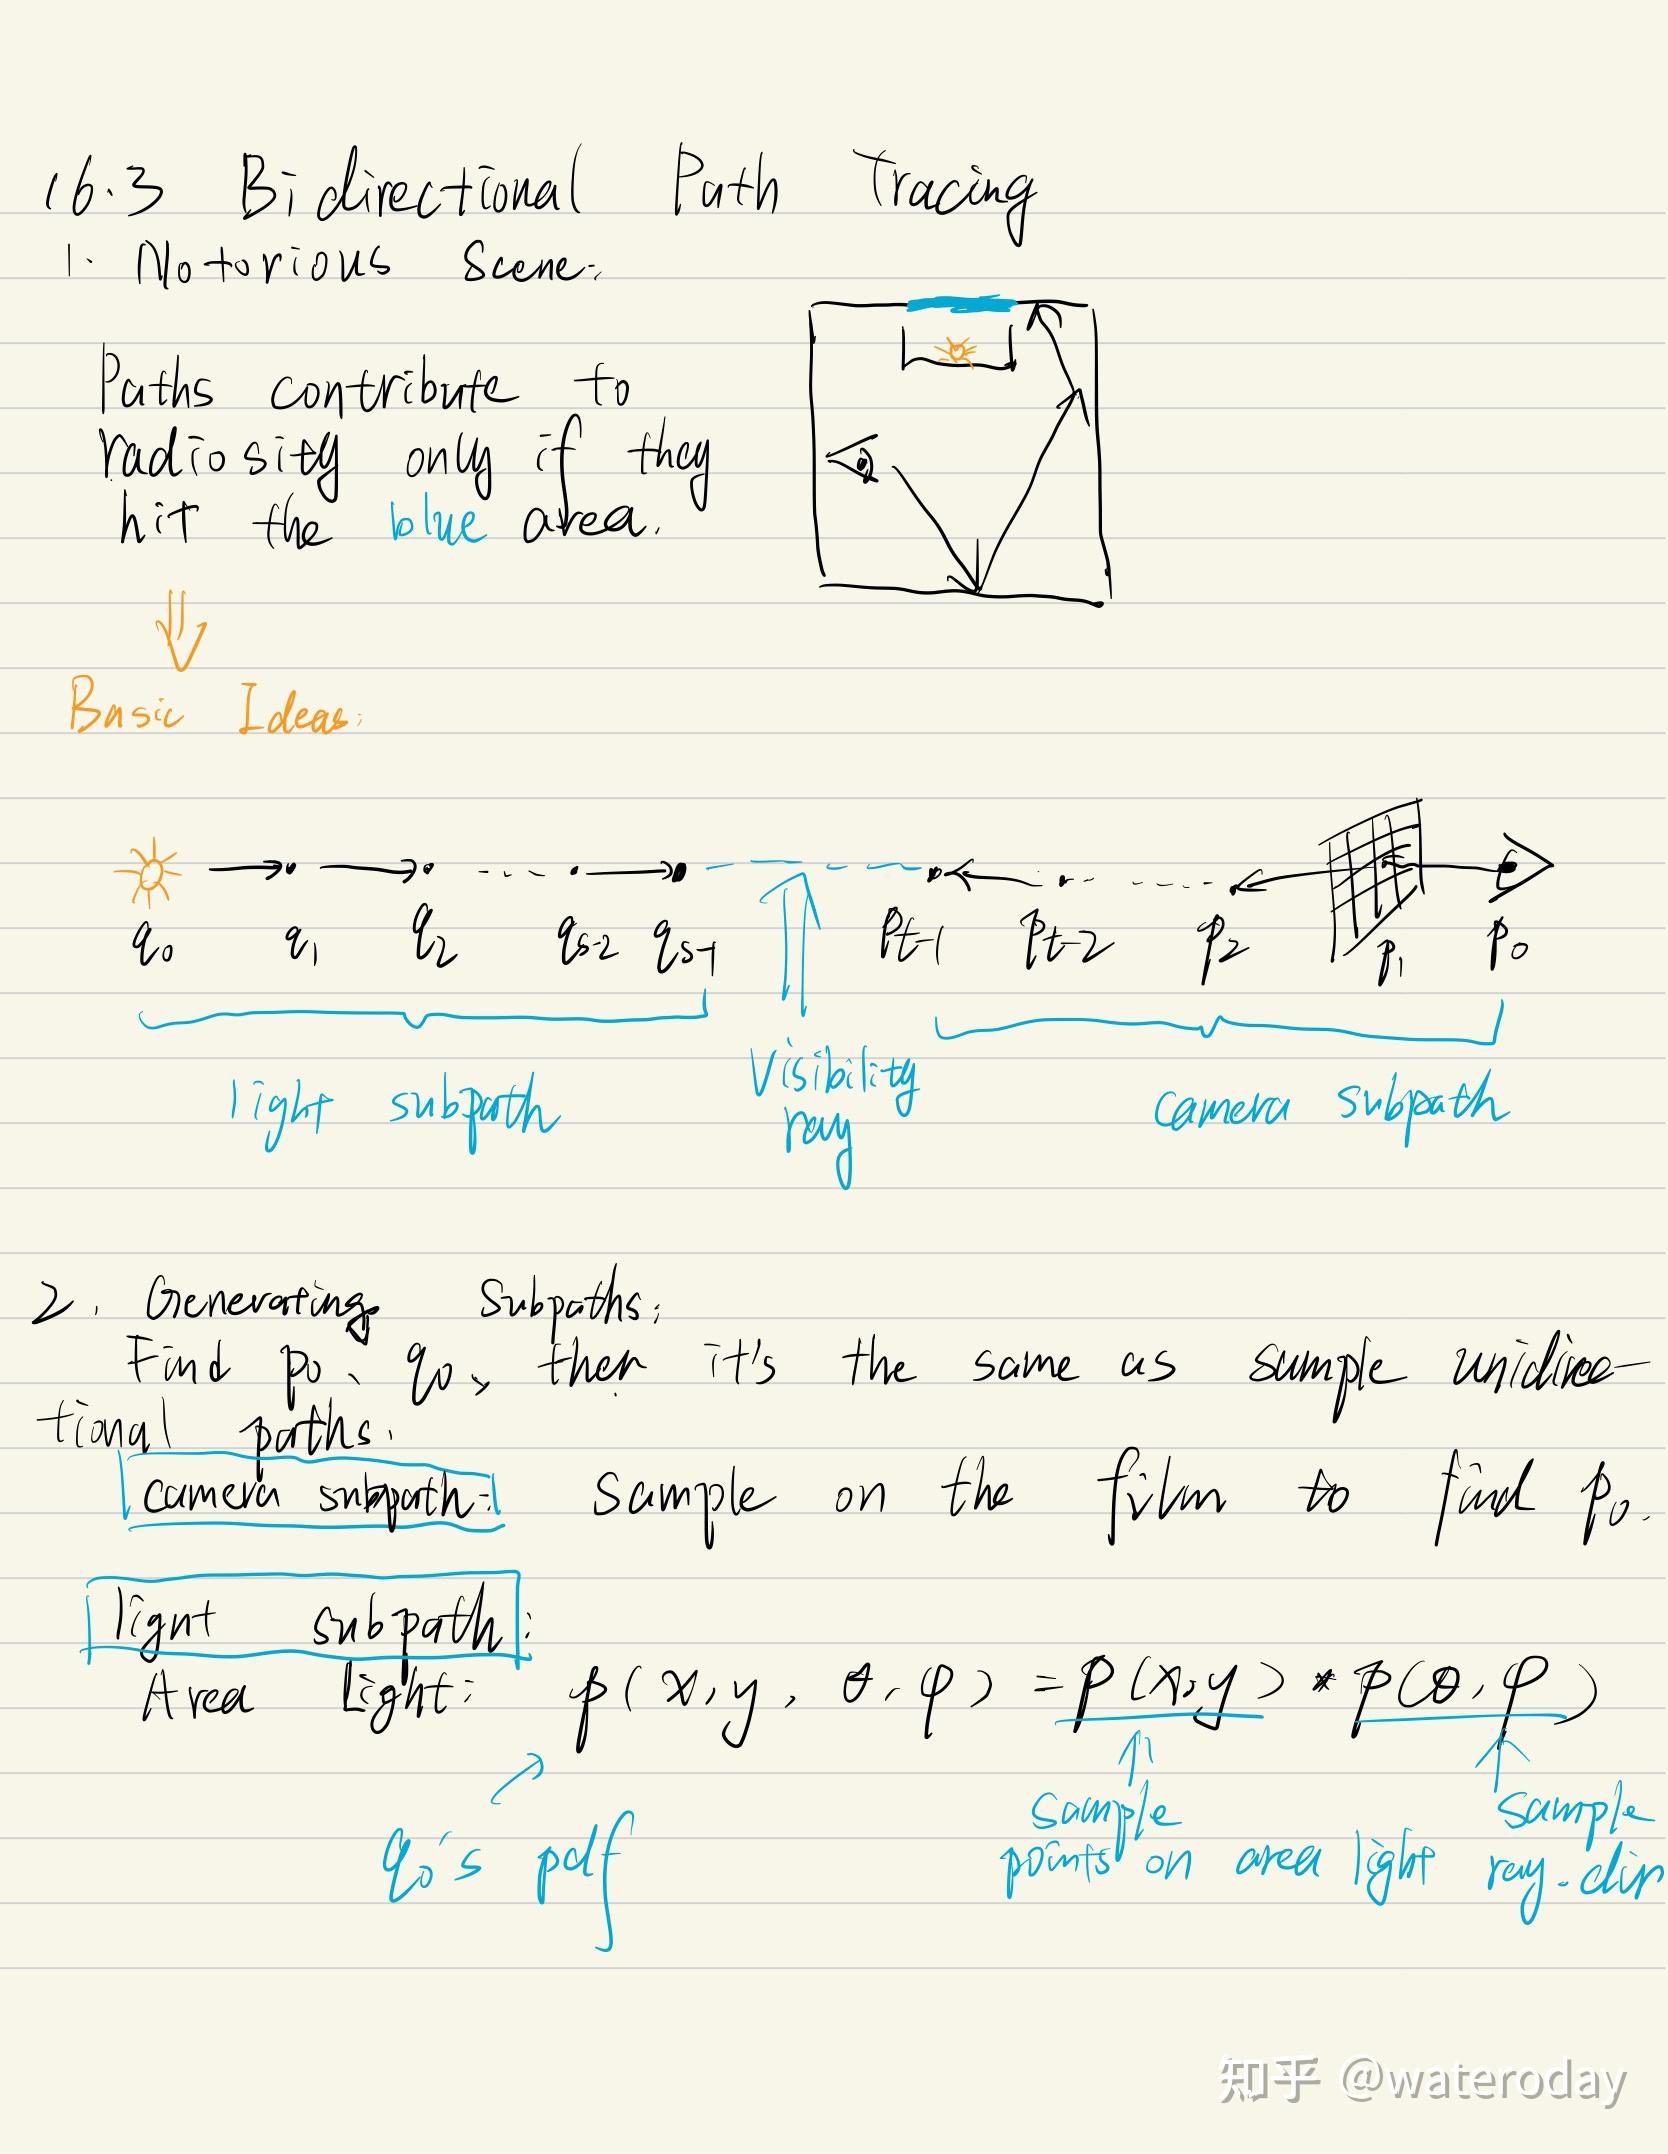 16.3 Bidirectional Path Tracing
1. Notorious Scene:
Paths contribute to
radiosity only if they
hit the blue area.
Basic Ideas:
q0 q1 q2 qs-2 qs-1 pt-1 pt-2 p2 p1 p0
light subpath
Visibility
ray
camera subpath
2. Generating Subpaths:
Find p0、q0、then it's the same as sample unidirec-
tional paths.
camera subpath: Sample on the film to find p0.
light subpath:
Area light: p(x,y, θ,φ) = p(x,y) * p(θ,φ)
q0's pdf
sample
points on area light
sample
ray-dir
知乎 @wateroday